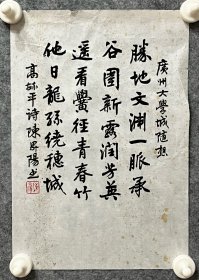 廣州大學城随想
勝地文渊一脈承
谷園新露润芳英
遥看黌径青春竹
他日龍孫绕穗城
高林平诗陳昇陽书